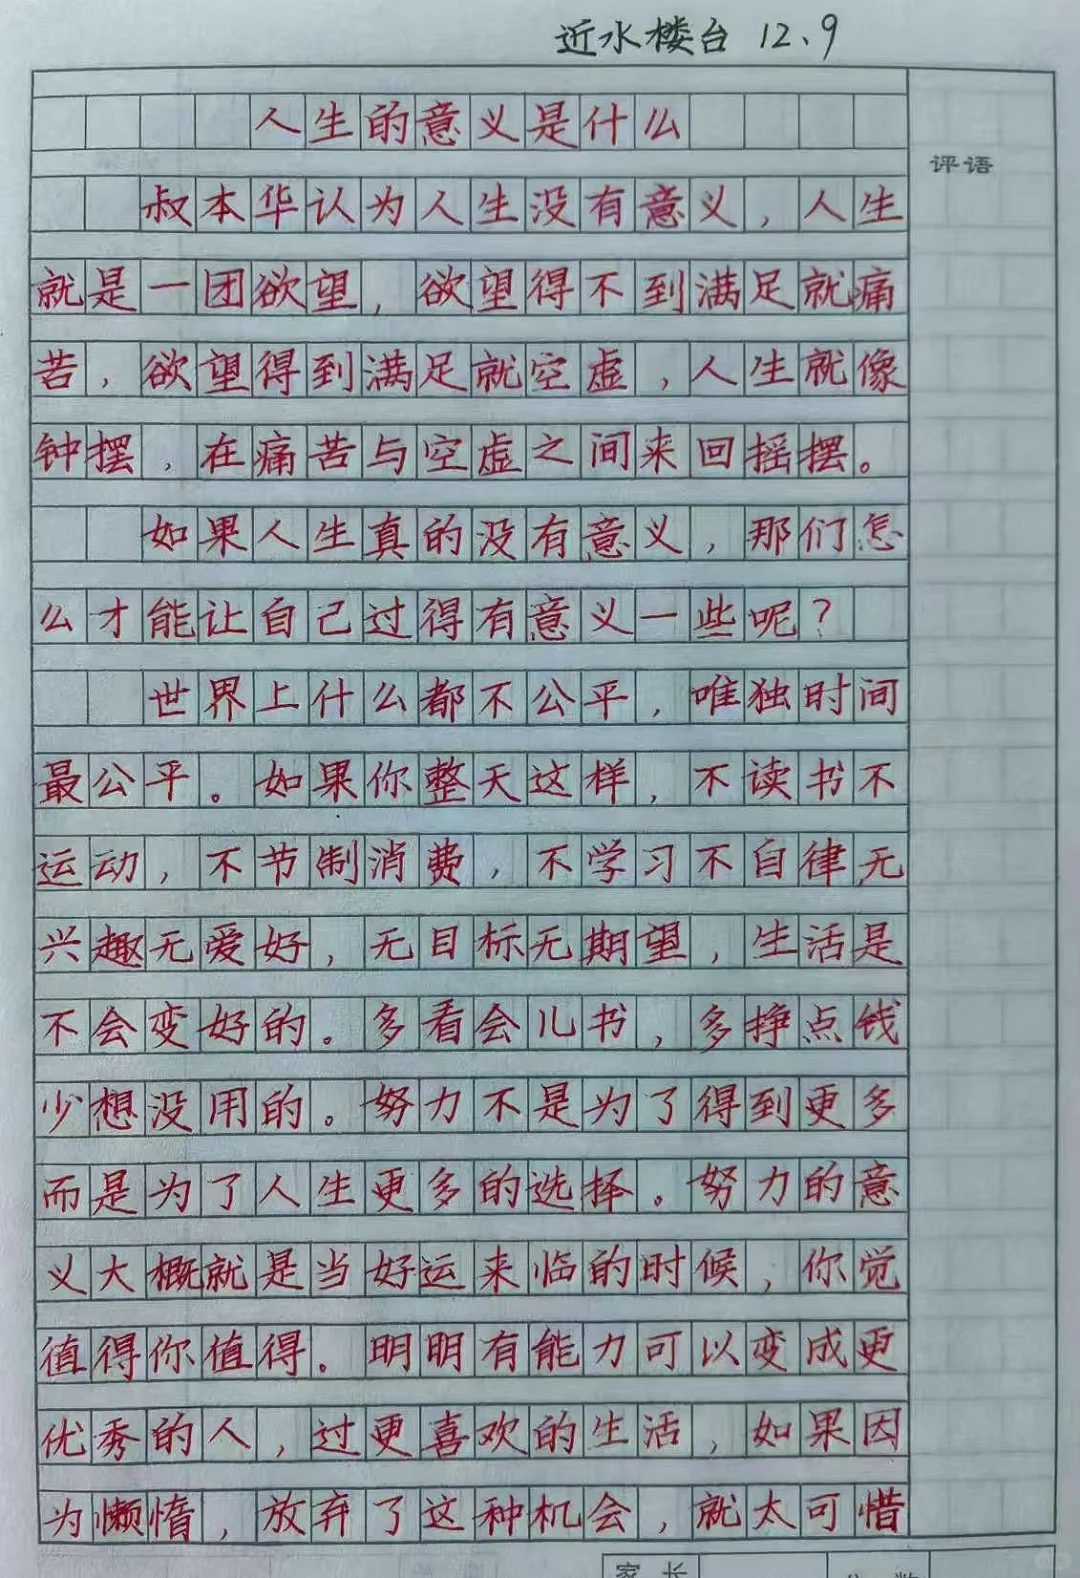 近水楼台 12.9
人生的意义是什么
评语
叔本华认为人生没有意义，人生
就是一团欲望，欲望得不到满足就痛
苦，欲望得到满足就空虚，人生就像
钟摆，在痛苦与空虚之间来回摇摆。
如果人生真的没有意义，那们怎
么才能让自己过得有意义一些呢？
世界上什么都不公平，唯独时间
最公平。如果你整天这样，不读书不
运动，不节制消费，不学习不自律无
兴趣无爱好，无目标无期望，生活是
不会变好的。多看会儿书，多挣点钱
少想没用的。努力不是为了得到更多
而是为了人生更多的选择。努力的意
义大概就是当好运来临的时候，你觉
值得你值得。明明有能力可以变成更
优秀的人，过更喜欢的生活，如果因
为懒惰，放弃了这种机会，就太可惜
家长